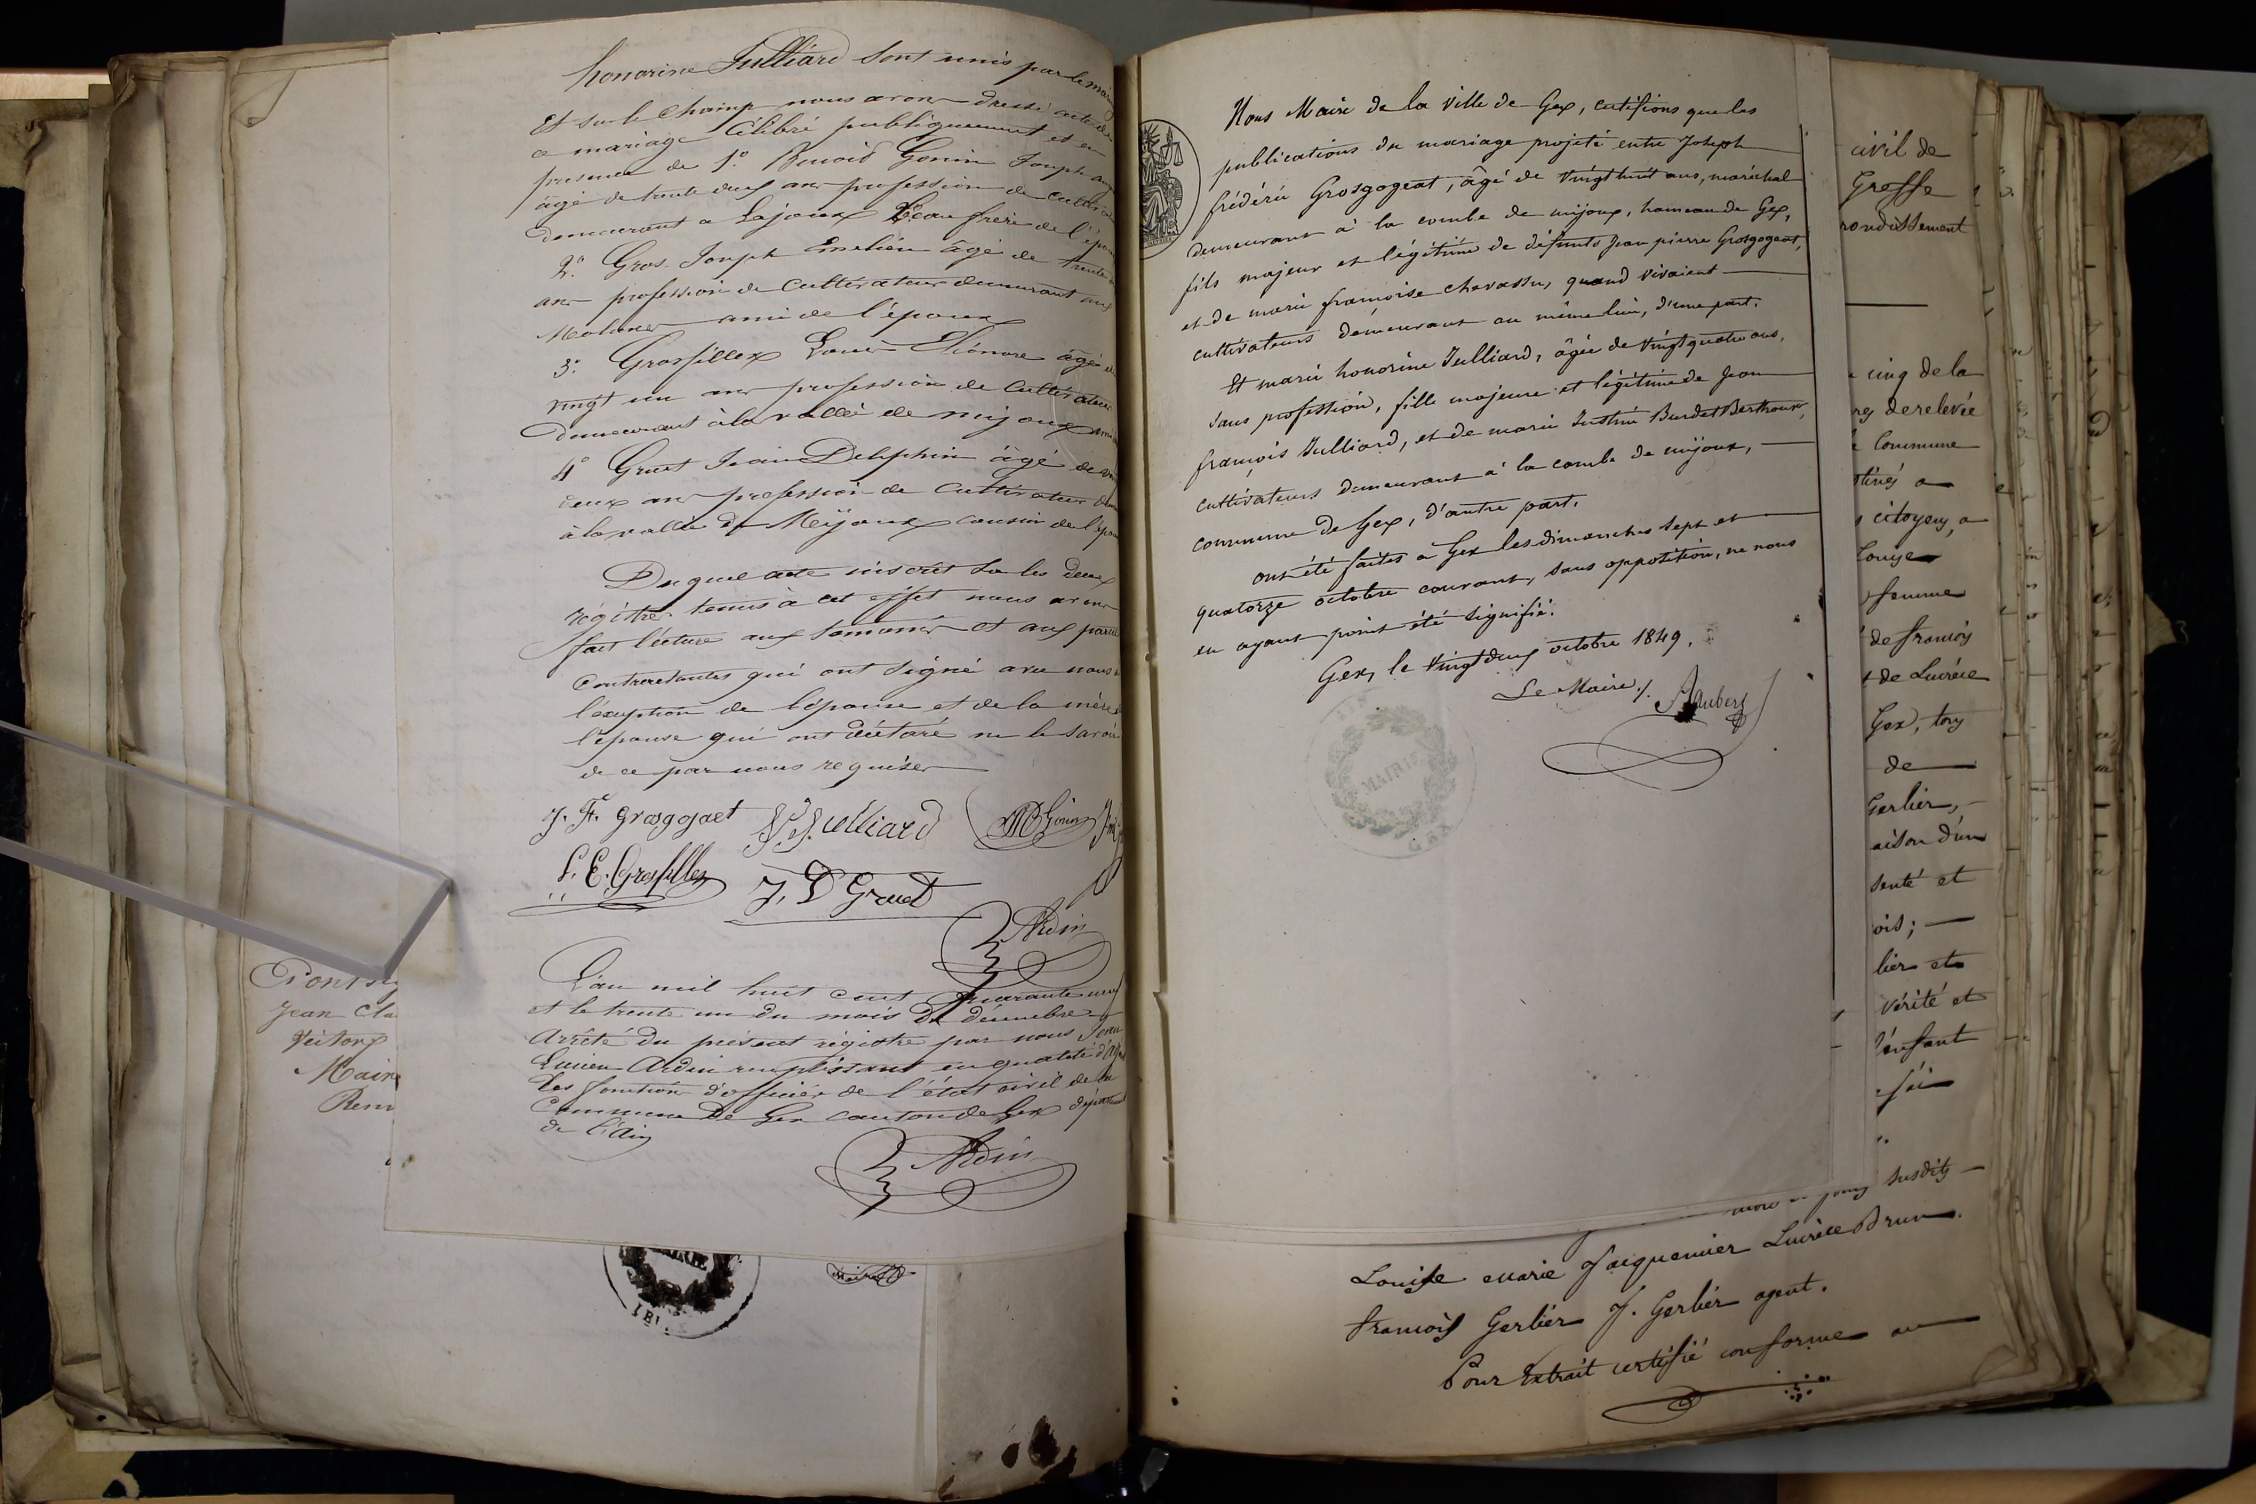 honorine Julliard sont unis par le maria
Et sur le champ nous avons dressé acte de
ce mariage célébré publiquement et en
présence de 1º Benoid Gonin Joseph
âgé de trente deux ans profession de cultiva
demeurant a Lajoux Beau frère de l'épou
2º Gros Joseph Emelien âgé de trente
ans profession de cultivateur demeurant aux
Molunes ami de l'époux
3º Grosfillex Louis Eléonore âgé de
vingt un ans profession de cultivateur
demeurant à la vallée de mijoux ami
4º Gruet Jean Delphin âgé de
deux ans profession de cultivateur dem
à la vallée de Mijoux cousin de l'épou
Duquel acte inscrit sur les deux
régistres tenus à cet effet nous avons
fait lécture aux témoins et aux parti
contractantes qui ont signé avec nous à
l'éxeption de l'épouse et de la mère de
l'épouse qui ont déclaré ne le savoir
de ce par nous requises
J. F. grosgojaet J. f. Julliard Gonin
L. E. Grosfillex J. D Gruet
Ardin
L'an mil huit cent quarante neuf
et le trente un du mois de décembre
Arrêté du présent régistre par nous Jean
Lucien Ardin remplissant en qualité d'adj
les fonctions d'officier de l'état civil de la
Commune De Gex canton de Gex départment
de l'Ain
Ardin
Pontsy
Jean Cla
Veitonx
Maire
Renv
MAIRIE
Nous Maire de la ville de Gex, certifions que les
publications du mariage projeté entre Joseph
frédéric Grosgogeat, âgé de vingt huit ans, maréchal
demeurant à la combe de mijoux, hameau de Gex,
fils majeur et légitime de défunts Jean pierre Grosgogeat,
et de marie françoise chavassu, quand vivaient
cultivateurs demeurant au même lieu, d'une part.
Et marie honorine Julliard, âgée de vingt quatre ans,
sans profession, fille majeure et légitime de Jean
françois Julliard, et de marie Justine Burdet Berthoux,
cultivateurs demeurant à la combe de mijoux,
commune de Gex, d'autre part.
ont été faites à Gex les dimanches sept et
quatorze octobre courant, sans opposition, ne nous
en ayant point été signifié.
Gex, le vingt deux octobre 1849.
Le Maire /.
MAIRIE
GEX
civil de
Greffe
rondissement
cinq de la
res de relevée
Commune
stinés a
citoyens, a
Louise
femme
de françois
de Lucrèce
Gex, tous
de
Gerlier,
aison d'un
senté et
ois;
lier et
vérité et
l'enfant
susdits
Louise Marie Jacquemier Lucrèce Brun.
françois Gerlier J. Gerlier agent.
Pour Extrait certifié conforme au